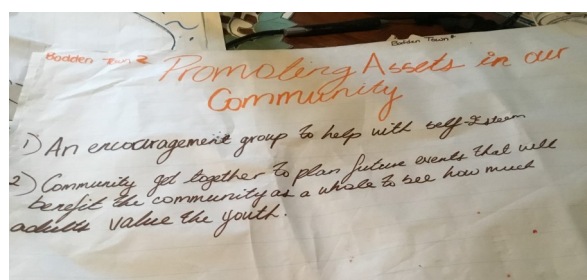 Bodden Town 2
Bodden Town
Promoting Assets in our
Community
1) An encouragement group to help with self-esteem
2) Community get together to plan future events that will
benefit the community as a whole to see how much
adults value the youth.